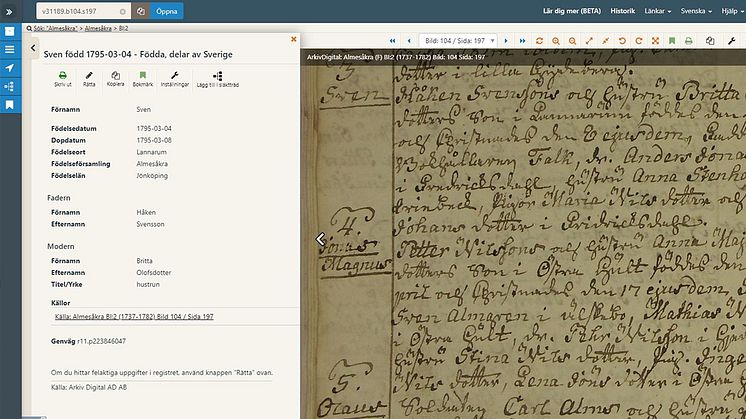 v31189.b104.s197
Öppna
Lär dig mer (BETA)
Historik
Länkar
Svenska
Hjälp
Sök: "Almesåkra" > Almesåkra > BI:2
Sven född 1795-03-04 - Födda, delar av Sverige
Skriv ut
Rätta
Kopiera
Bokmärk
Inställningar
Lägg till i släktträd
Förnamn Sven
Födelsedatum 1795-03-04
Dopdatum 1795-03-08
Födelseort Lannarum
Födelseförsamling Almesåkra
Födelselän Jönköping
Fadern
Förnamn Håken
Efternamn Svensson
Modern
Förnamn Britta
Efternamn Olofsdotter
Titel/Yrke hustrun
Källor
Källa: Almesåkra BI:2 (1737-1782) Bild 104 / Sida 197
Genväg r11.p223846047
Om du hittar felaktiga uppgifter i registret, använd knappen "Rätta" ovan.
Källa: Arkiv Digital AD AB
Bild: 104 / Sida: 197
ArkivDigital: Almesåkra (F) BI:2 (1737-1782) Bild: 104 Sida: 197
dotter i Lilla
3
Sven
Håken Svenssons och hustru Britta
dotters Son i Lannarum föddes den
och Christnades den
Bokhållaren Falk, dr. Anders Jona
i Fredricksdahl, hustru Anna Stenho
Pigor Maria Nils dotter och
Johans dotter i Fridricksdahl.
4.
Jonas
Magnus
Petter Nilssons och hustru Anna Maj
dotters Son i Östra Hult föddes den
april och Christnades den 17 ejusdem,
Sven Almgren i Mathias N
i Östra Hult, dr. Pehr Nilsson i
hustru Stina Nils dotter, Pig. Inge
5.
Olaus
dotter, Lena Jöns dotter i Östra
Soldaten Carl Alms och